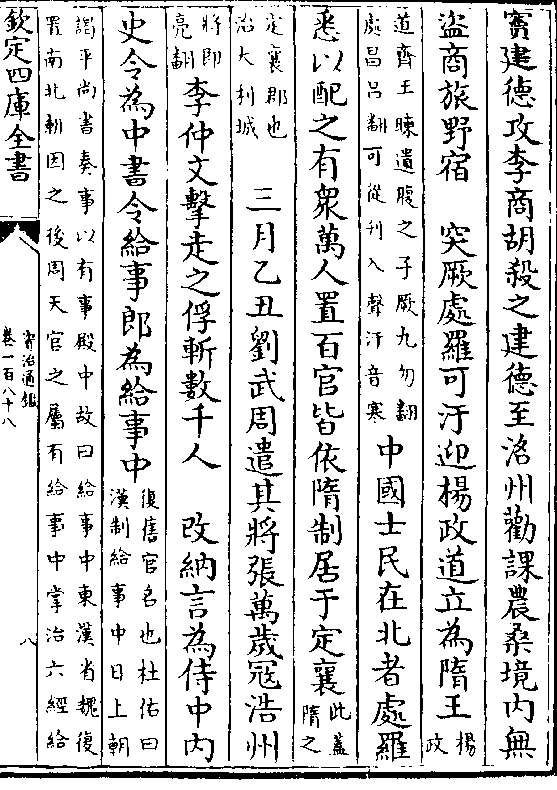 竇建德攻李商胡殺之建德至洺州勸課農桑境内無
盜商旅野宿　突厥處羅可汗迎楊政道立為隋王楊政
道齊王暕遺腹之子厥九勿翻
處昌吕翻可從刋入聲汗音寒
中國士民在北者處羅
悉以配之有衆萬人置百官皆依隋制居于定襄此蓋隋之
定襄郡也
治大利城
三月乙丑劉武周遣其將張萬歲冦浩州
將即亮翻李仲文擊走之俘斬數千人　改納言為侍中内
史令為中書令給事郎為給事中
復舊官名也杜佑曰
漢制給事中日上朝
謁平尚書奏事以有事殿中故曰給事中東漢省魏復
置南北朝因之後周天官之屬有給事中掌治六經給
欽定四庫全書
資治通鑑
卷一百八十八
八